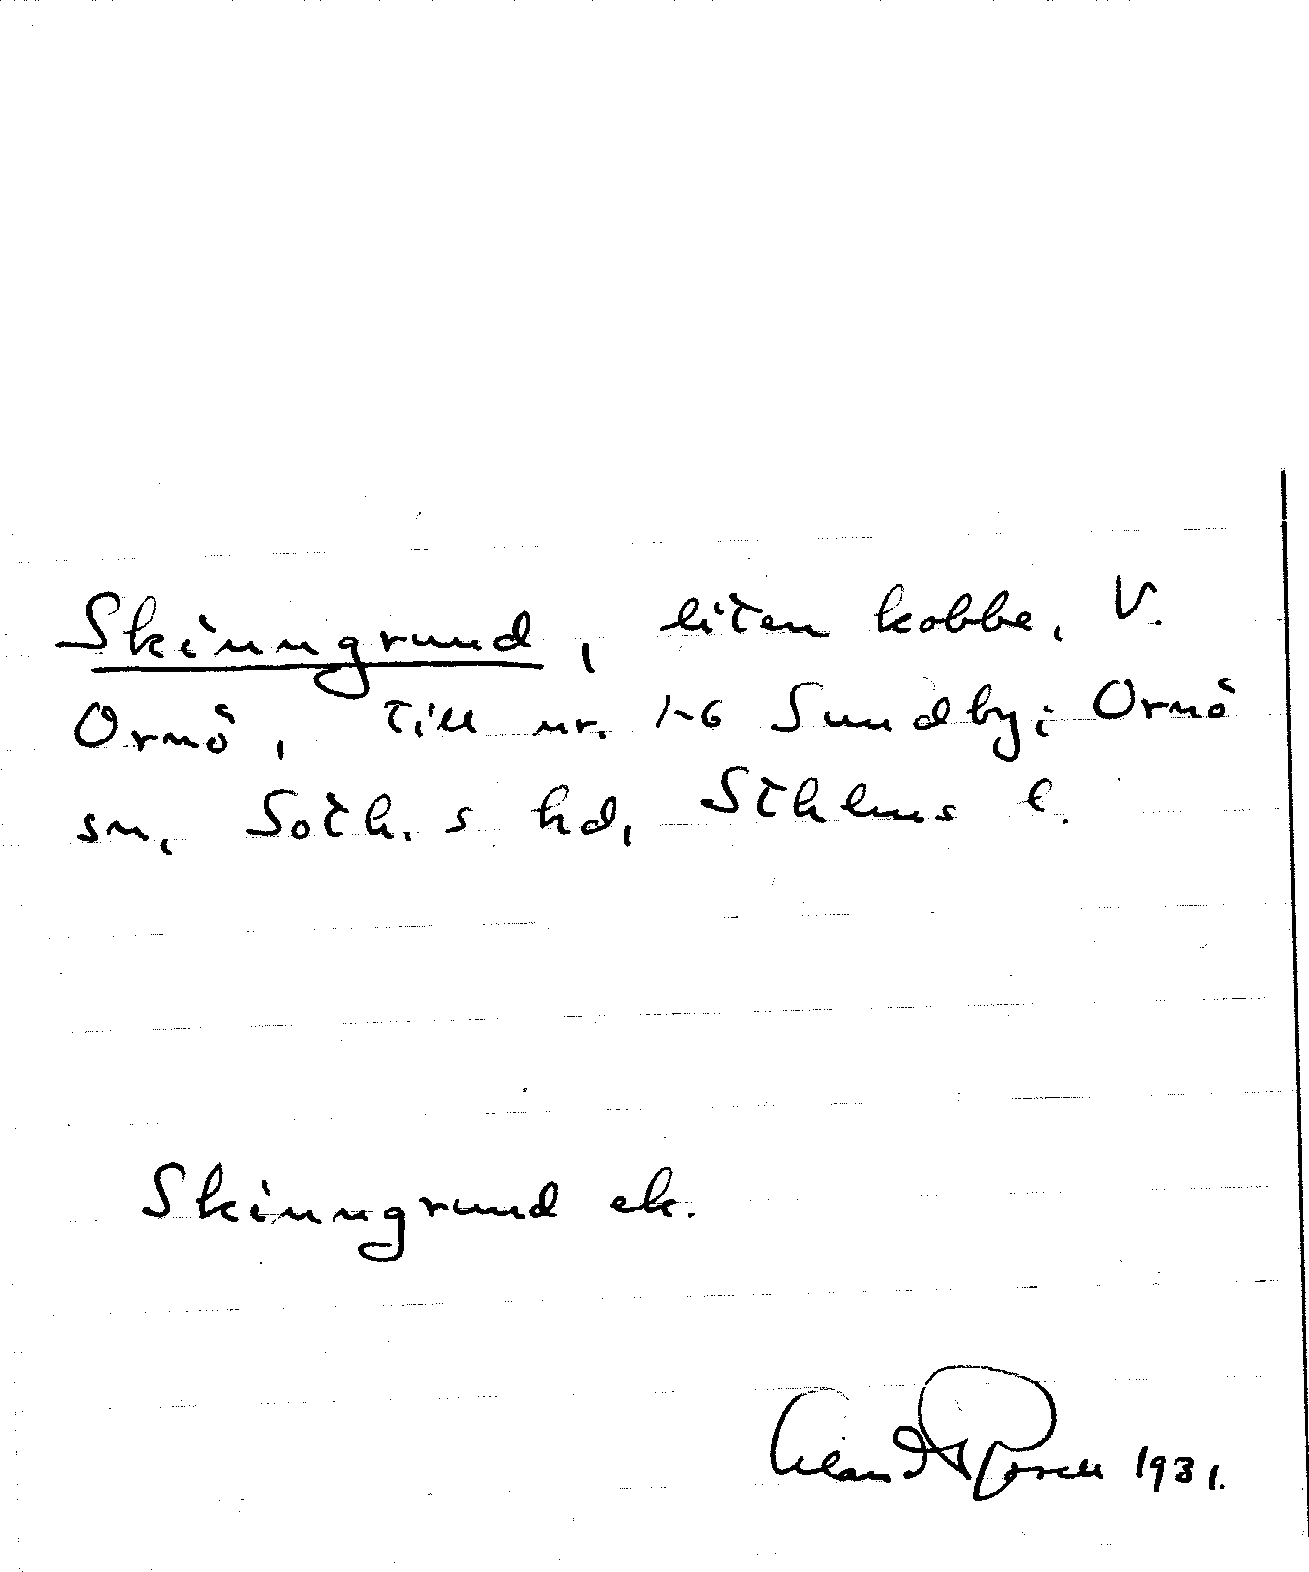 Skinngrund, liten kobbe, V.
Ornö, till nr. 1-6 Sundby i Ornö
sn, Soth. s hd, Sthlms l.
Skinngrund ek.
1931.